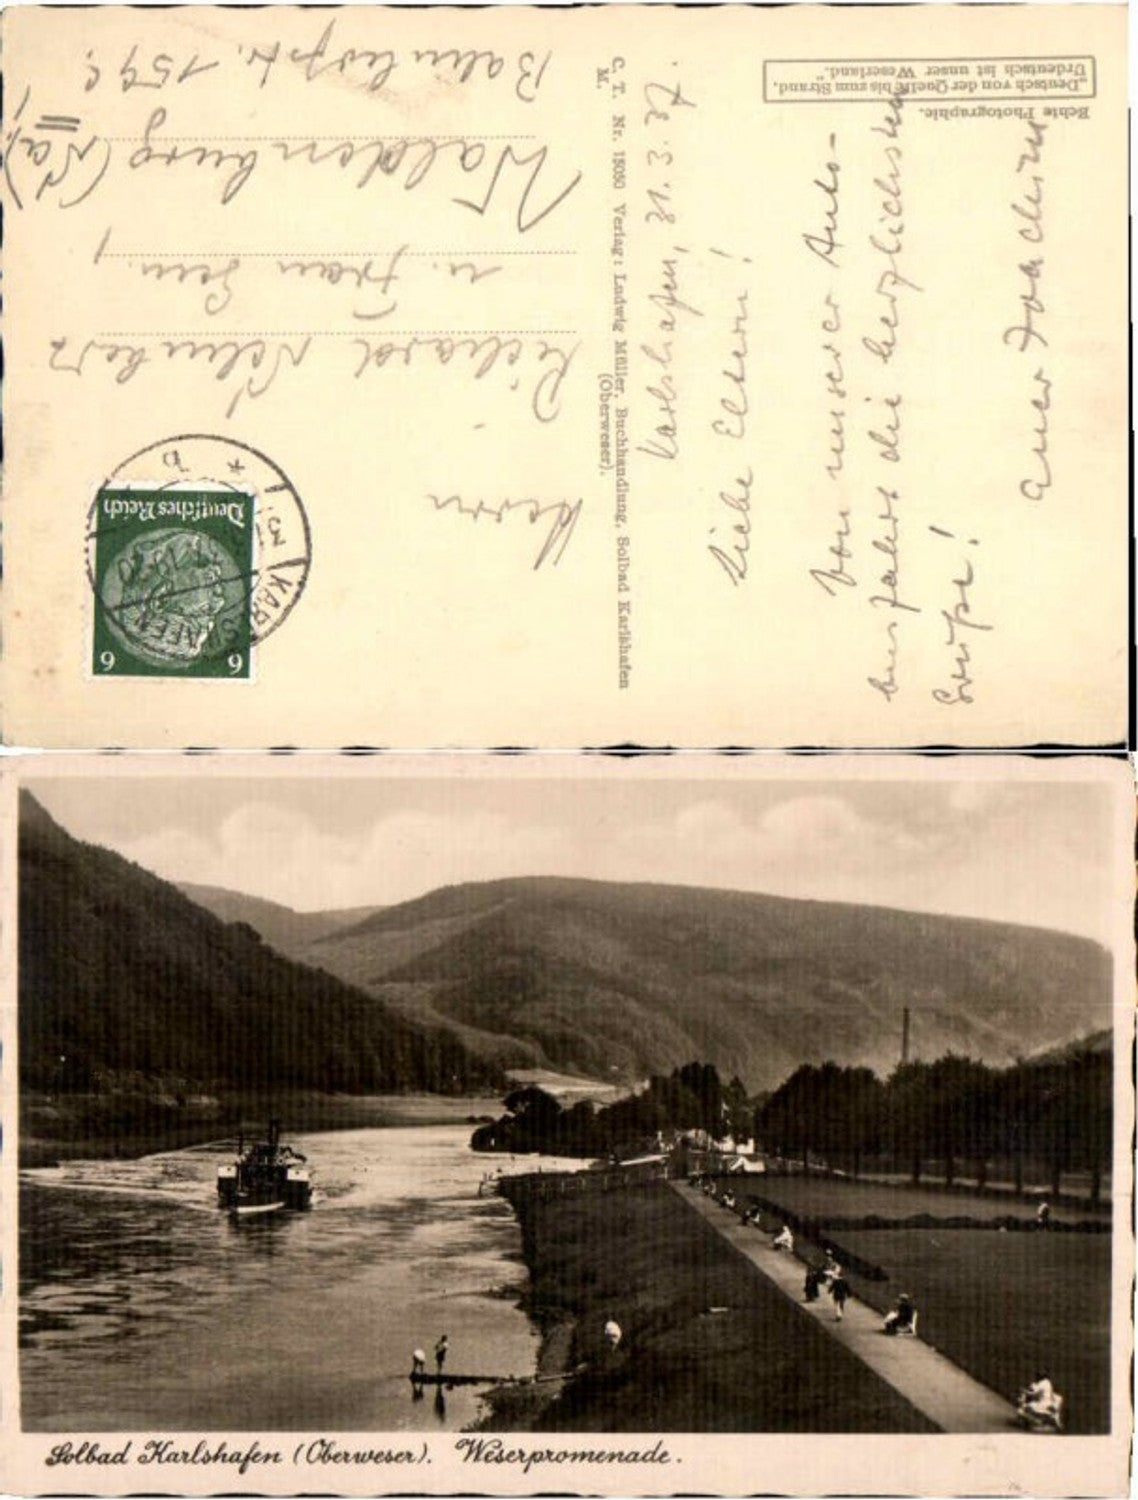 Echte Photographie.
„Deutsch von der Quelle bis zum Strand,
Urdeutsch ist unser Weserland."
Karlshafen, 31.3.37.
Liebe Eltern!
Von unserer Auto-
fahrt die herzlichsten
Grüße!
Euer Joachim
C. T. Nr. 15050 Verlag: Ludwig Müller, Buchhandlung, Solbad Karlshafen
M. (Oberweser).
Deutsches Reich
6 6
KARLSHAFEN
* b
Herrn
Richard
u. Frau Gem.
Waldenburg (Sa.)
Bahnhofstr. 159 c.
Solbad Karlshafen (Oberweser). Weserpromenade.